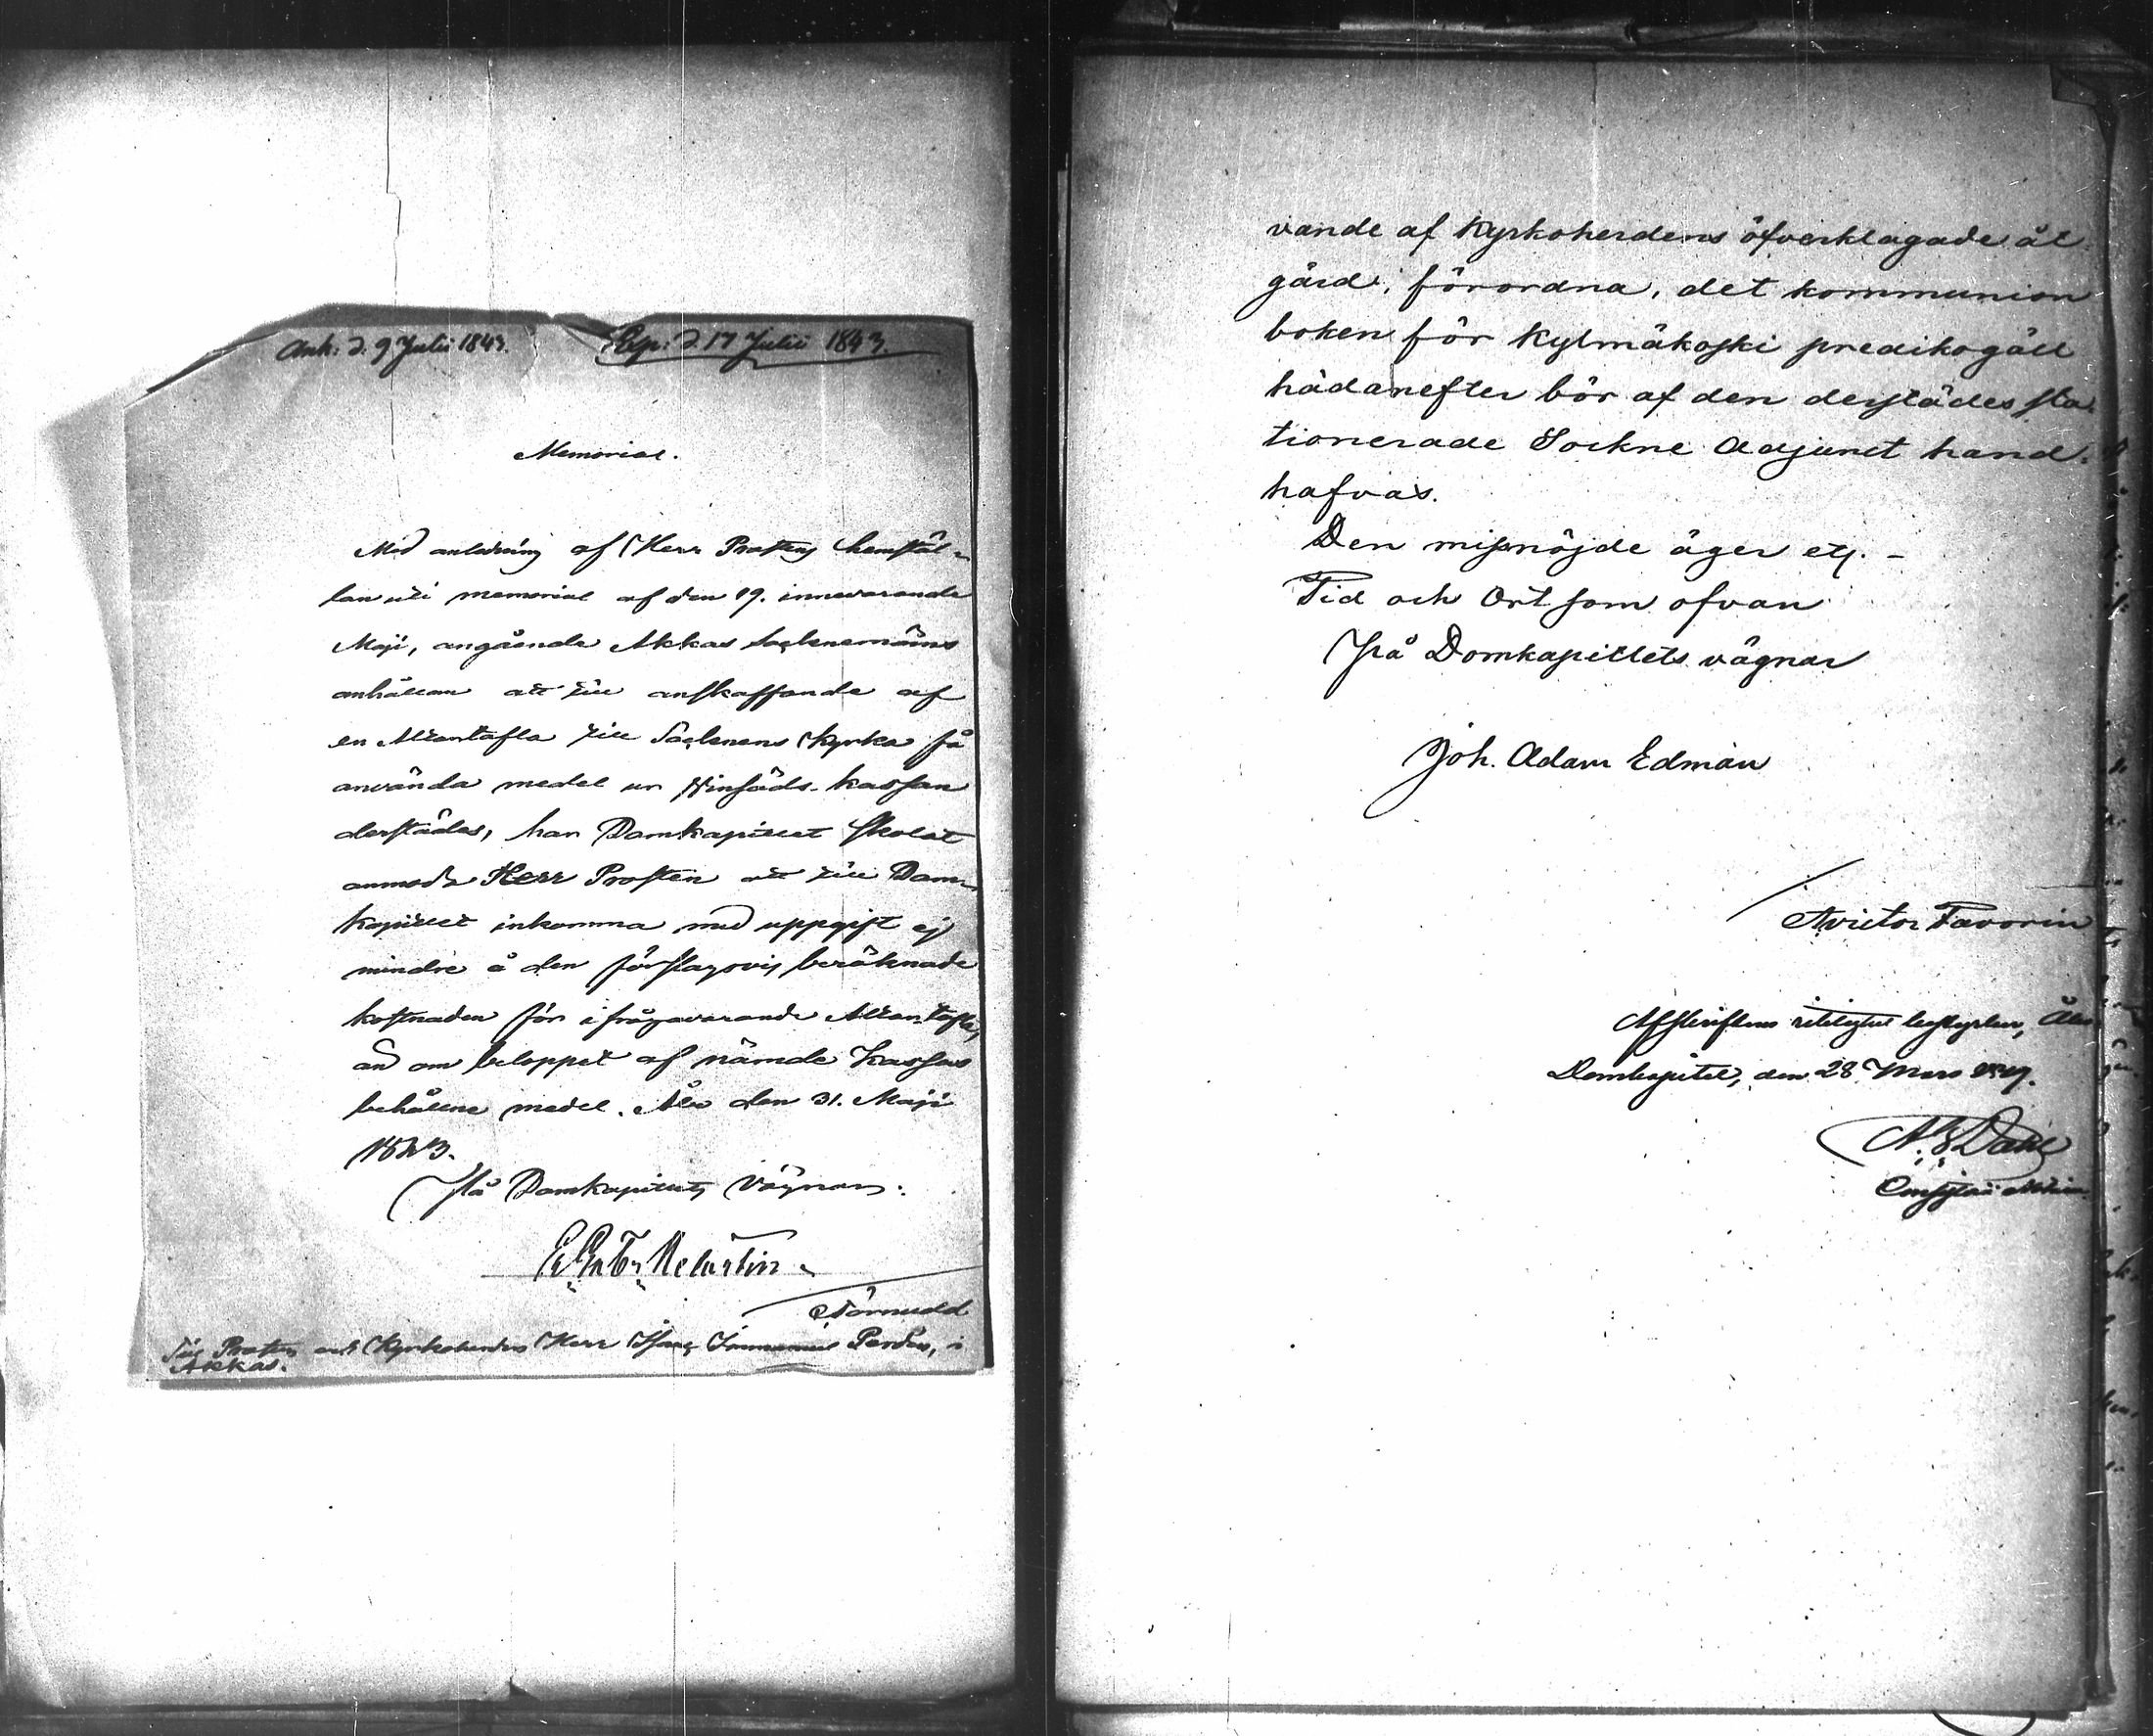 Ank: d. 9 Julii 1843. Exp: d. 17 Julii 1843.
Memorial.
Med anledning af Herr Prostens hemstäl-
lan uti memorial af den 19. innevarande
Maji, angående Akkas Sockenemäns
anhållan att till anskaffande af
en Altartafla till Sockenens Kyrka få
använda medel ur Vinsäds-kassan
derstädes, har Domkapitlet skolat
anmoda Herr Prosten att till Dom-
kapitlet inkomma med uppgift ej
mindre å den förslagsvis beräknade
kostnaden för ifrågavarande Altar-tafla,
än om beloppet af nämde Kassas
behållne medel. Åbo den 31. Maji
1843.
På Domkapitlets Vägnar:
E. Gabr. Melartin
Törnudd
Till Prosten och Kyrkoherden Herr Isaac Immanuel Perden, i
Akkas.
vande af Kyrkoherdens öfverklagade åt
gärd, förordna, det kommunion
boken för Kylmäkoski predikogäll
hädanefter bör af den derstädes sta
tionerade Sockne Adjunct hand-
hafvas.
Den missnöjde äger etc. -
Tid och Ort som ofvan
På Domkapitlets vägnar
Joh. Adam Edman
Avictor Favorin
Afskriftens riktighet bestyrker, Åbo
Domkapitel, den 28 Mars
Dahl